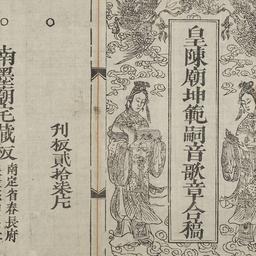 皇陳廟坤範嗣音歌章合稿
刊板貳拾柒片
南墨廟宅藏板
南定省春長府